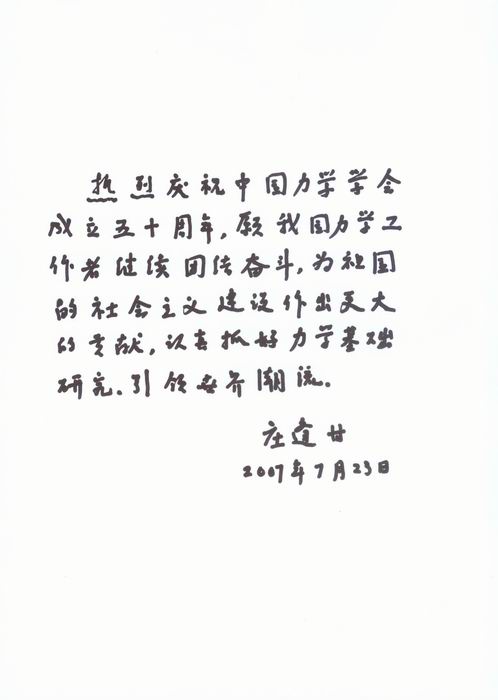 热烈庆祝中国力学学会
成立五十周年,愿我国力学工
作者继续团结奋斗,为祖国
的社会主义建设作出更大
的贡献,认真抓好力学基础
研究.引领世界潮流.
庄逢甘
2007年7月23日